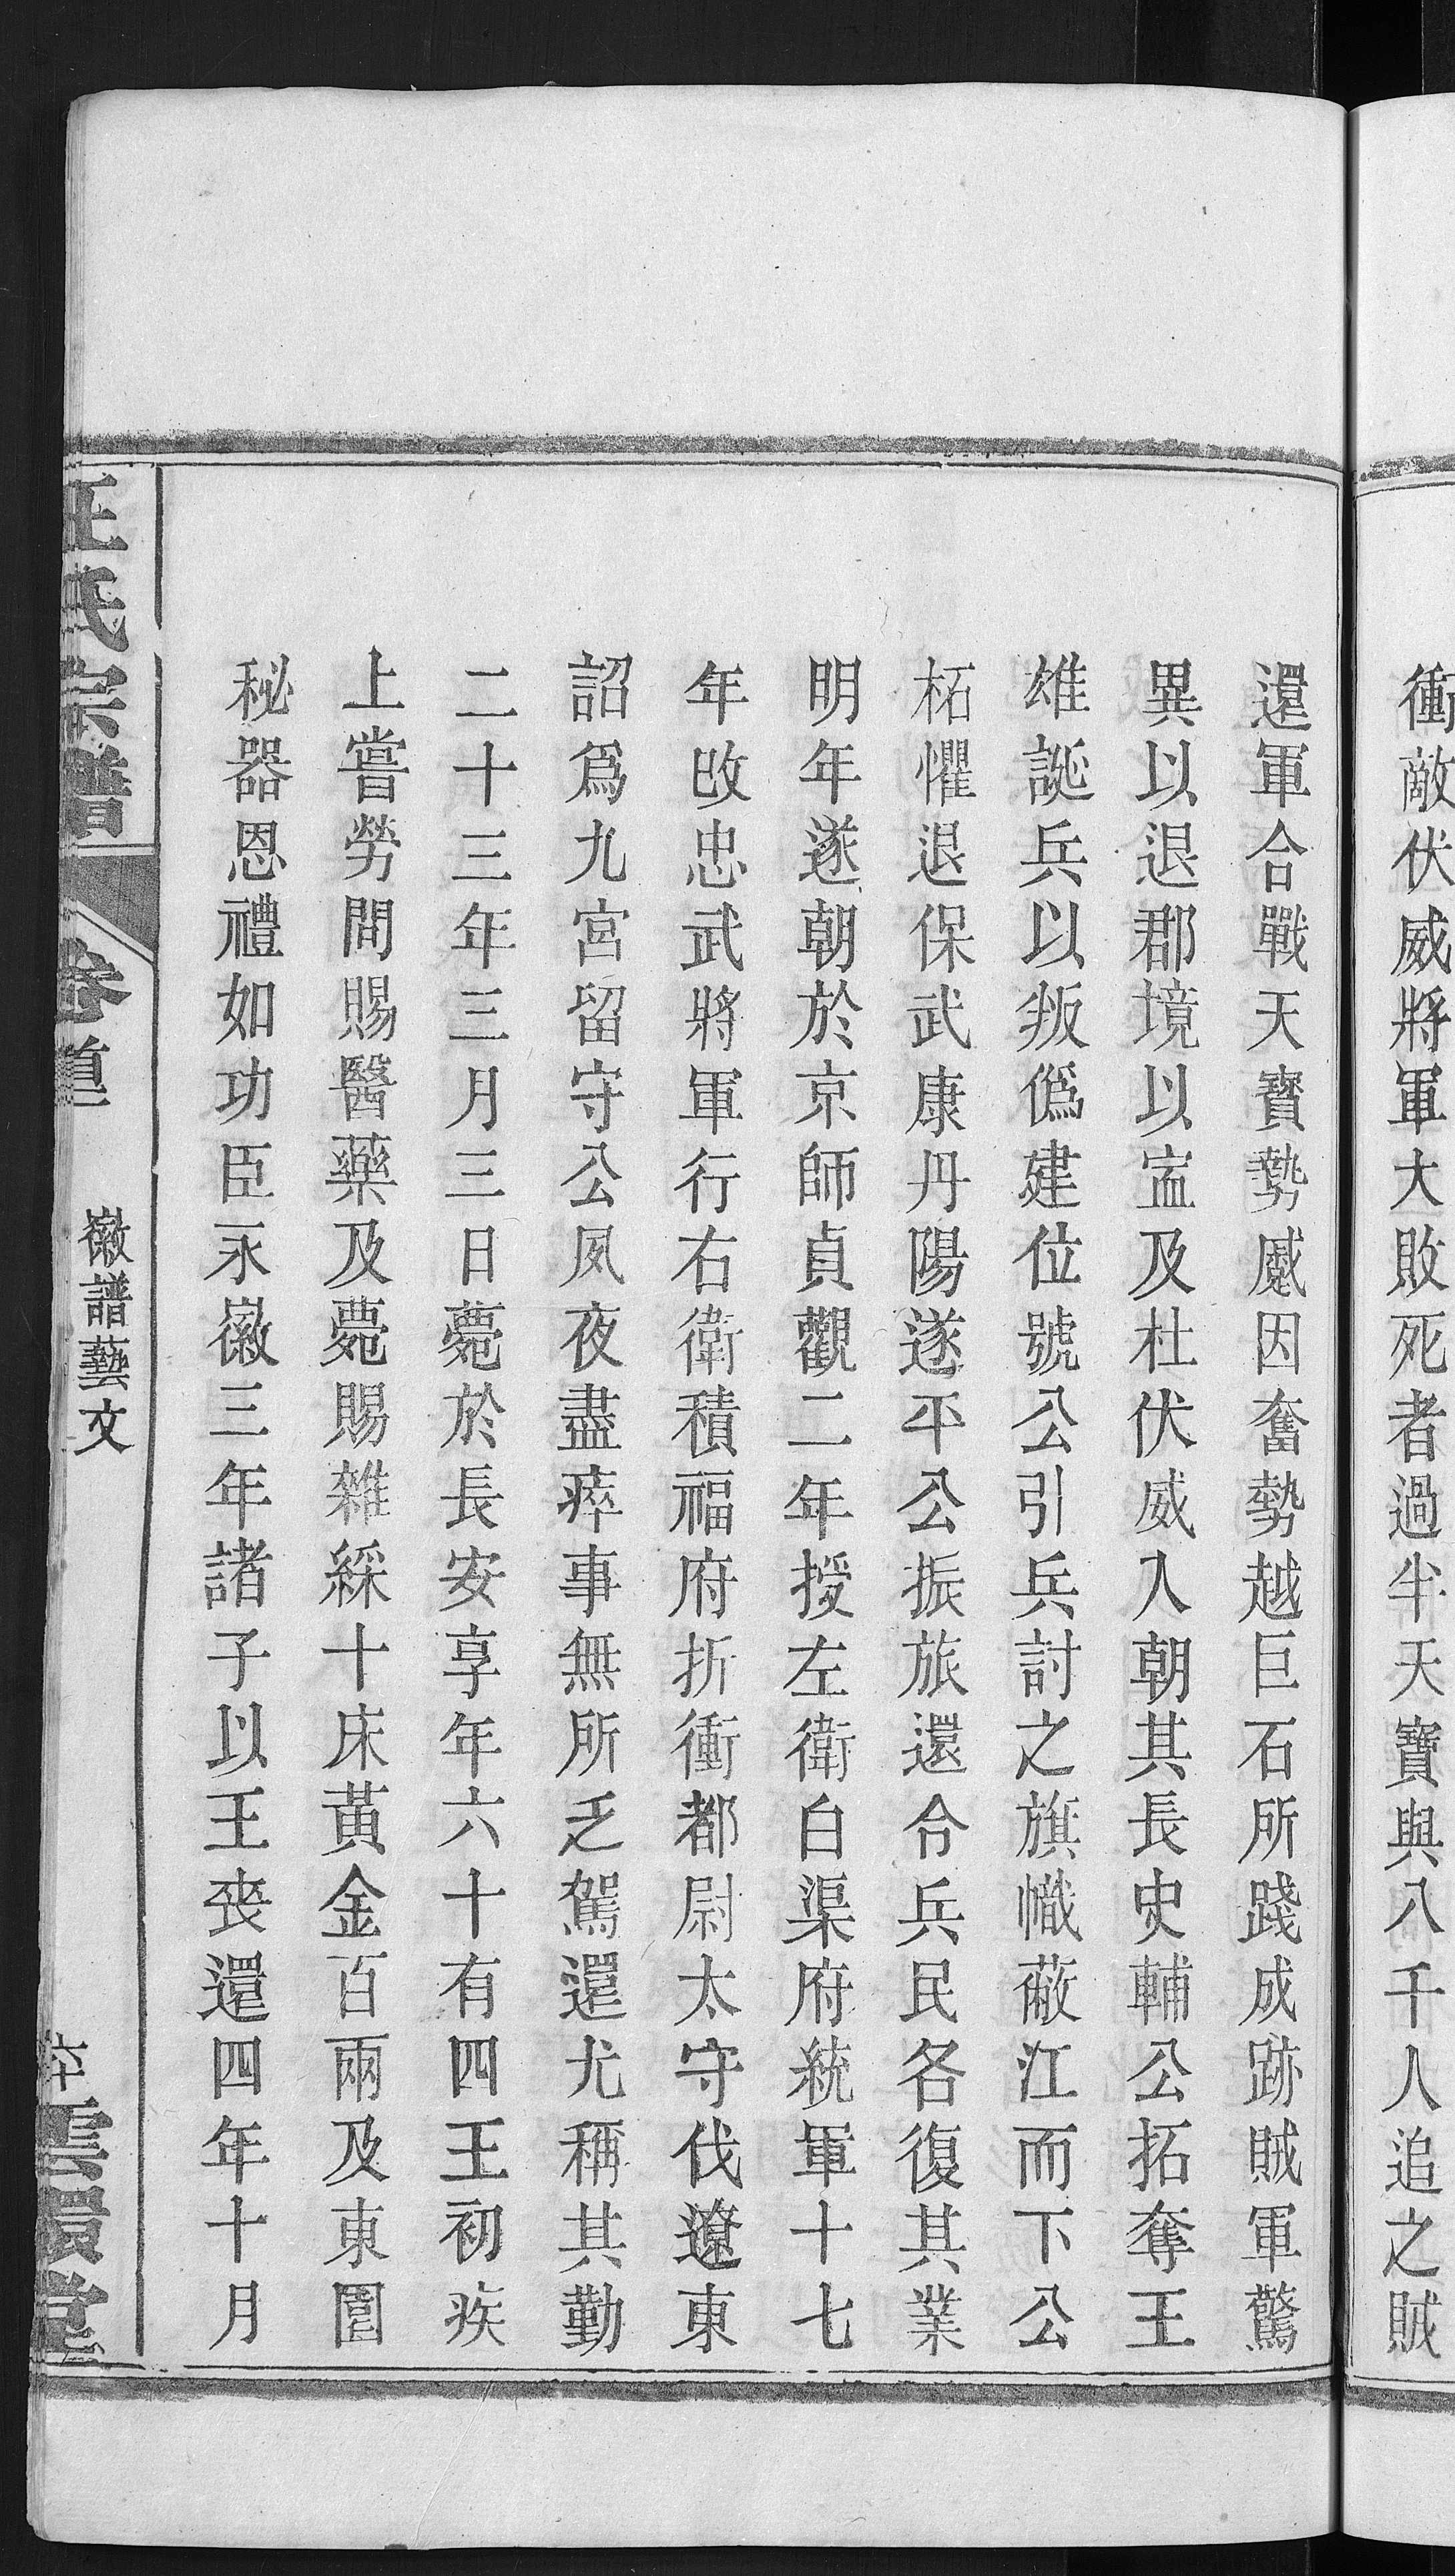 衝敵伏威將軍大敗死者過半天寶與八千人追之賊
還軍合戰天寶勢蹙因奮勢越巨石所踐成跡賊軍驚
異以退郡境以寍及杜伏威入朝其長史輔公拓奪王
雄誕兵以叛僞建位號公引兵討之旗幟蔽江而下公
柘懼退保武康丹陽遂平公振旅還令兵民各復其業
明年遂朝於京師貞觀二年授左衛白渠府統軍十七
年改忠武將軍行右衛積福府折衝都尉太守伐遼東
詔爲九宮留守公夙夜盡瘁事無所乏駕還尤稱其勤
二十三年三月三日薨於長安享年六十有四王初疾
上嘗勞問賜醫藥及薨賜雜綵十床黃金百兩及東園
秘器恩禮如功臣永徽三年諸子以王喪還四年十月
汪氏宗譜 卷首 徽譜藝文 六十 雲環堂